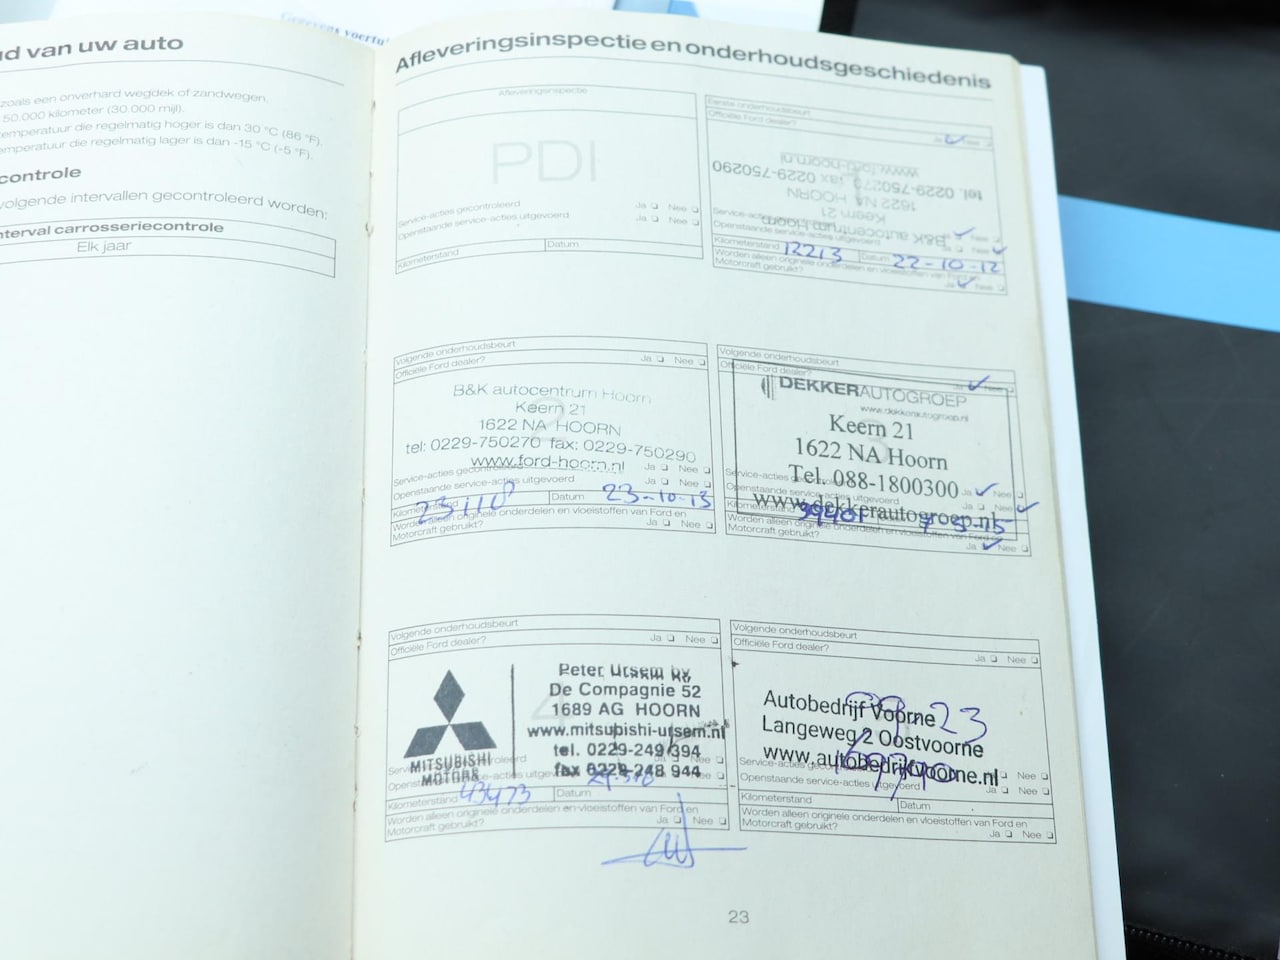 ud van uw auto
zoals een onverhard wegdek of zandwegen.
50.000 kilometer (30.000 mijl).
temperatuur die regelmatig hoger is dan 30 °C (86 °F).
emperatuur die regelmatig lager is dan -15 °C (-5 °F).
controle
volgende intervallen gecontroleerd worden:
nterval carrosseriecontrole
Elk jaar
Afleveringsinspectie en onderhoudsgeschiedenis
Afleveringsinspectie
PDI
Service-acties gecontroleerd Ja Nee
Openstaande service-acties uitgevoerd Ja Nee
Kilometerstand Datum
Eerste onderhoudsbeurt
Officiële Ford dealer?
Ja Nee
www.ford-hoorn.nl
tel. 0229-750270 fax 0229-750290
1622 NA HOORN
Keern 21
B&K autocentrum Hoorn
Service-acties
Openstaande service-acties uitgevoerd Ja Nee
Kilometerstand 12213 Datum 22-10-12
Worden alleen originele onderdelen en vloeistoffen van Ford en
Motorcraft gebruikt? Ja Nee
Volgende onderhoudsbeurt
Officiële Ford dealer? Ja Nee
B&K autocentrum Hoorn
Keern 21
1622 NA HOORN
tel: 0229-750270 fax: 0229-750290
www.ford-hoorn.nl
Service-acties gecontroleerd Ja Nee
Openstaande service-acties uitgevoerd Ja Nee
Kilometerstand Datum 23-10-13
Worden alleen originele onderdelen en vloeistoffen van Ford en
Motorcraft gebruikt? Ja Nee
Volgende onderhoudsbeurt
Officiële Ford dealer? Ja Nee
DEKKERAUTOGROEP
www.dekkerautogroep.nl
Keern 21
1622 NA Hoorn
Tel. 088-1800300
www.dekkerautogroep.nl
Service-acties Ja Nee
Openstaande service-acties uitgevoerd Ja Nee
Kilometerstand
Worden alleen originele onderdelen en vloeistoffen van Ford en
Motorcraft gebruikt? Ja Nee
Volgende onderhoudsbeurt
Officiële Ford dealer? Ja Nee
4
MITSUBISHI
MOTORS
Peter Ursem bv
De Compagnie 52
1689 AG HOORN
www.mitsubishi-ursem.nl
tel. 0229-249 394
fax 0229-248 944
Nee
Nee
Kilometerstand 43473 Datum
Worden alleen originele onderdelen en vloeistoffen van Ford en
Motorcraft gebruikt? Ja Nee
Volgende onderhoudsbeurt
Officiële Ford dealer? Ja Nee
Autobedrijf Voorne
23
Langeweg 2 Oostvoorne
www.autobedrijfvoorne.nl
Service-acties Ja Nee
Openstaande service-acties uitgevoerd Ja Nee
Kilometerstand Datum
Worden alleen originele onderdelen en vloeistoffen van Ford en
Motorcraft gebruikt? Ja Nee
23